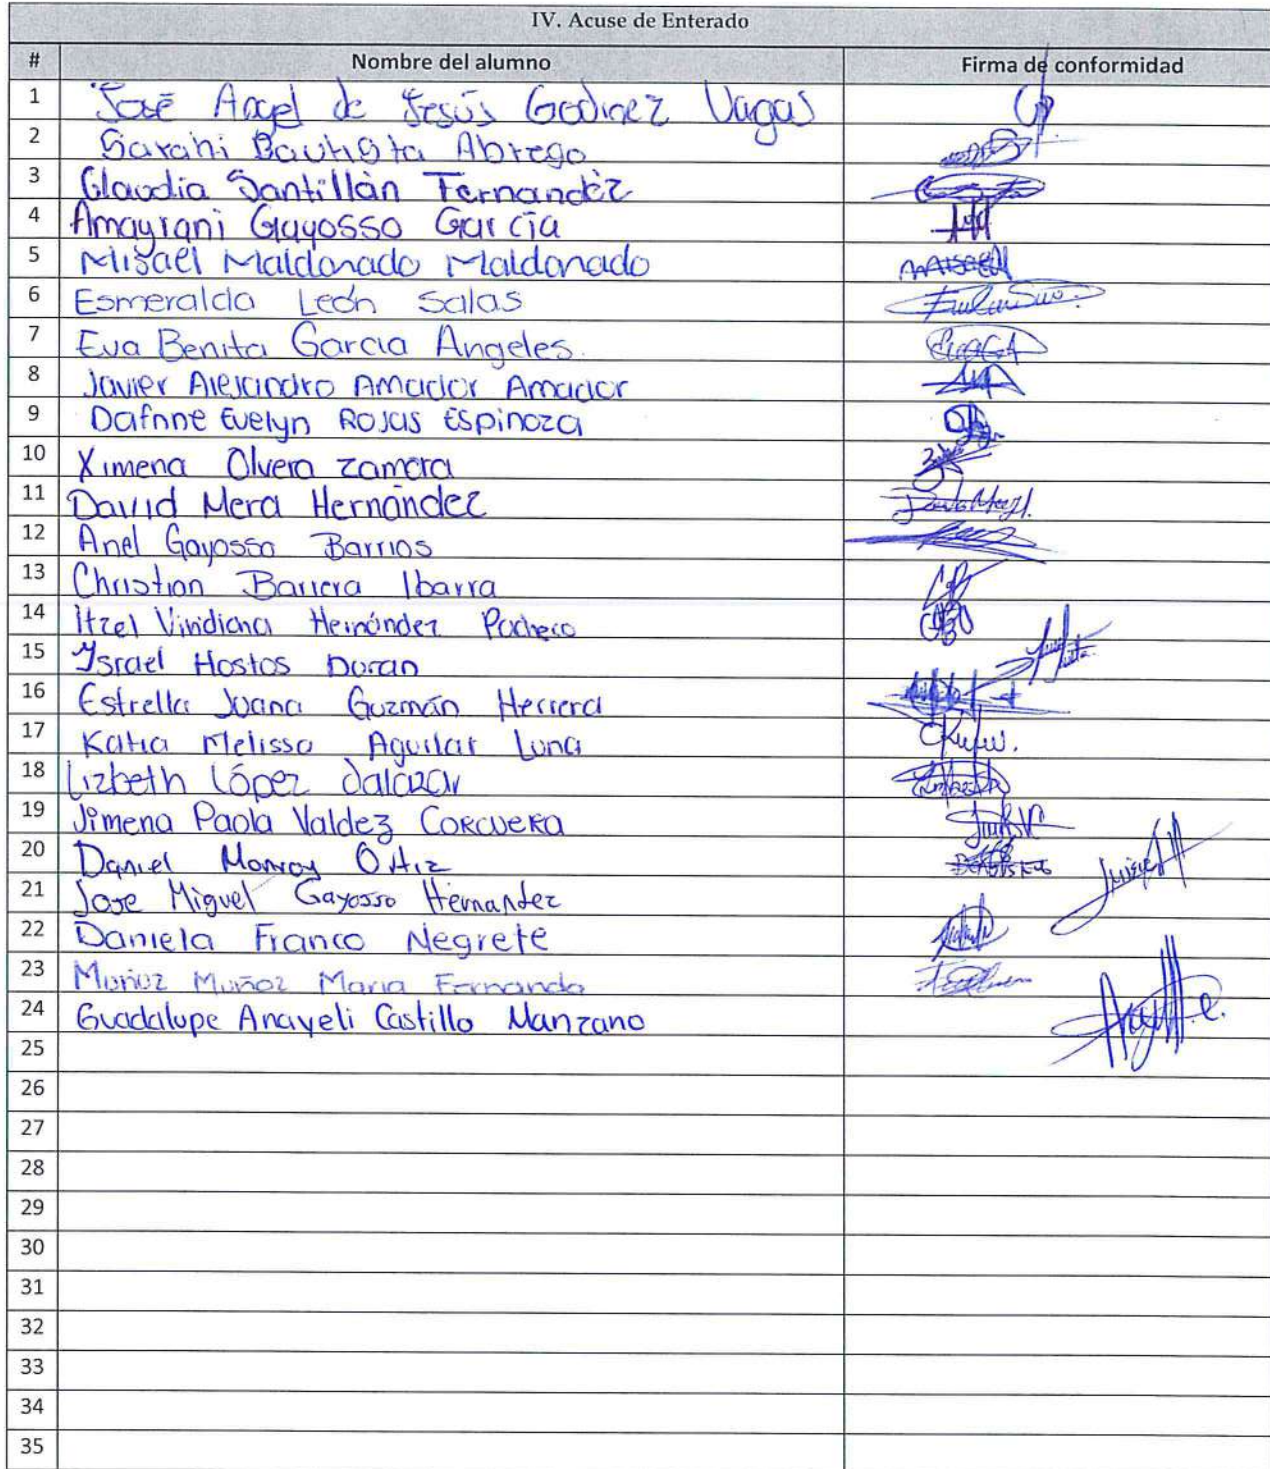 IV. Acuse de Enterado
# Nombre del alumno Firma de conformidad
1 José Angel de Jesús Godinez Vagas
2 Sarahi Bautista Abrego
3 Claudia Santillàn Fernandéz
4 Amayrani Gayosso García
5 Misael Maldonado Maldonado
6 Esmeralda León Salas
7 Eva Benita Garcia Angeles.
8 Javier Alejandro Amador Amador
9 Dafnne Evelyn Rojas Espinoza
10 Ximena Olvera Zamora
11 David Mera Hernández
12 Anel Gayosso Barrios
13 Christian Barrera Ibarra
14 Itzel Viridiana Hernández Pacheco
15 Israel Hostos Duran
16 Estrella Juana Guzmán Herrera
17 Katia Melissa Aguilar Luna
18 Lizbeth López Salazar
19 Jimena Paola Valdez Corcuera
20 Daniel Monroy Ortiz
21 Jose Miguel Gayosso Hernandez
22 Daniela Franco Negrete
23 Muñoz Muñoz Maria Fernanda
24 Guadalupe Anayeli Castillo Manzano
25
26
27
28
29
30
31
32
33
34
35